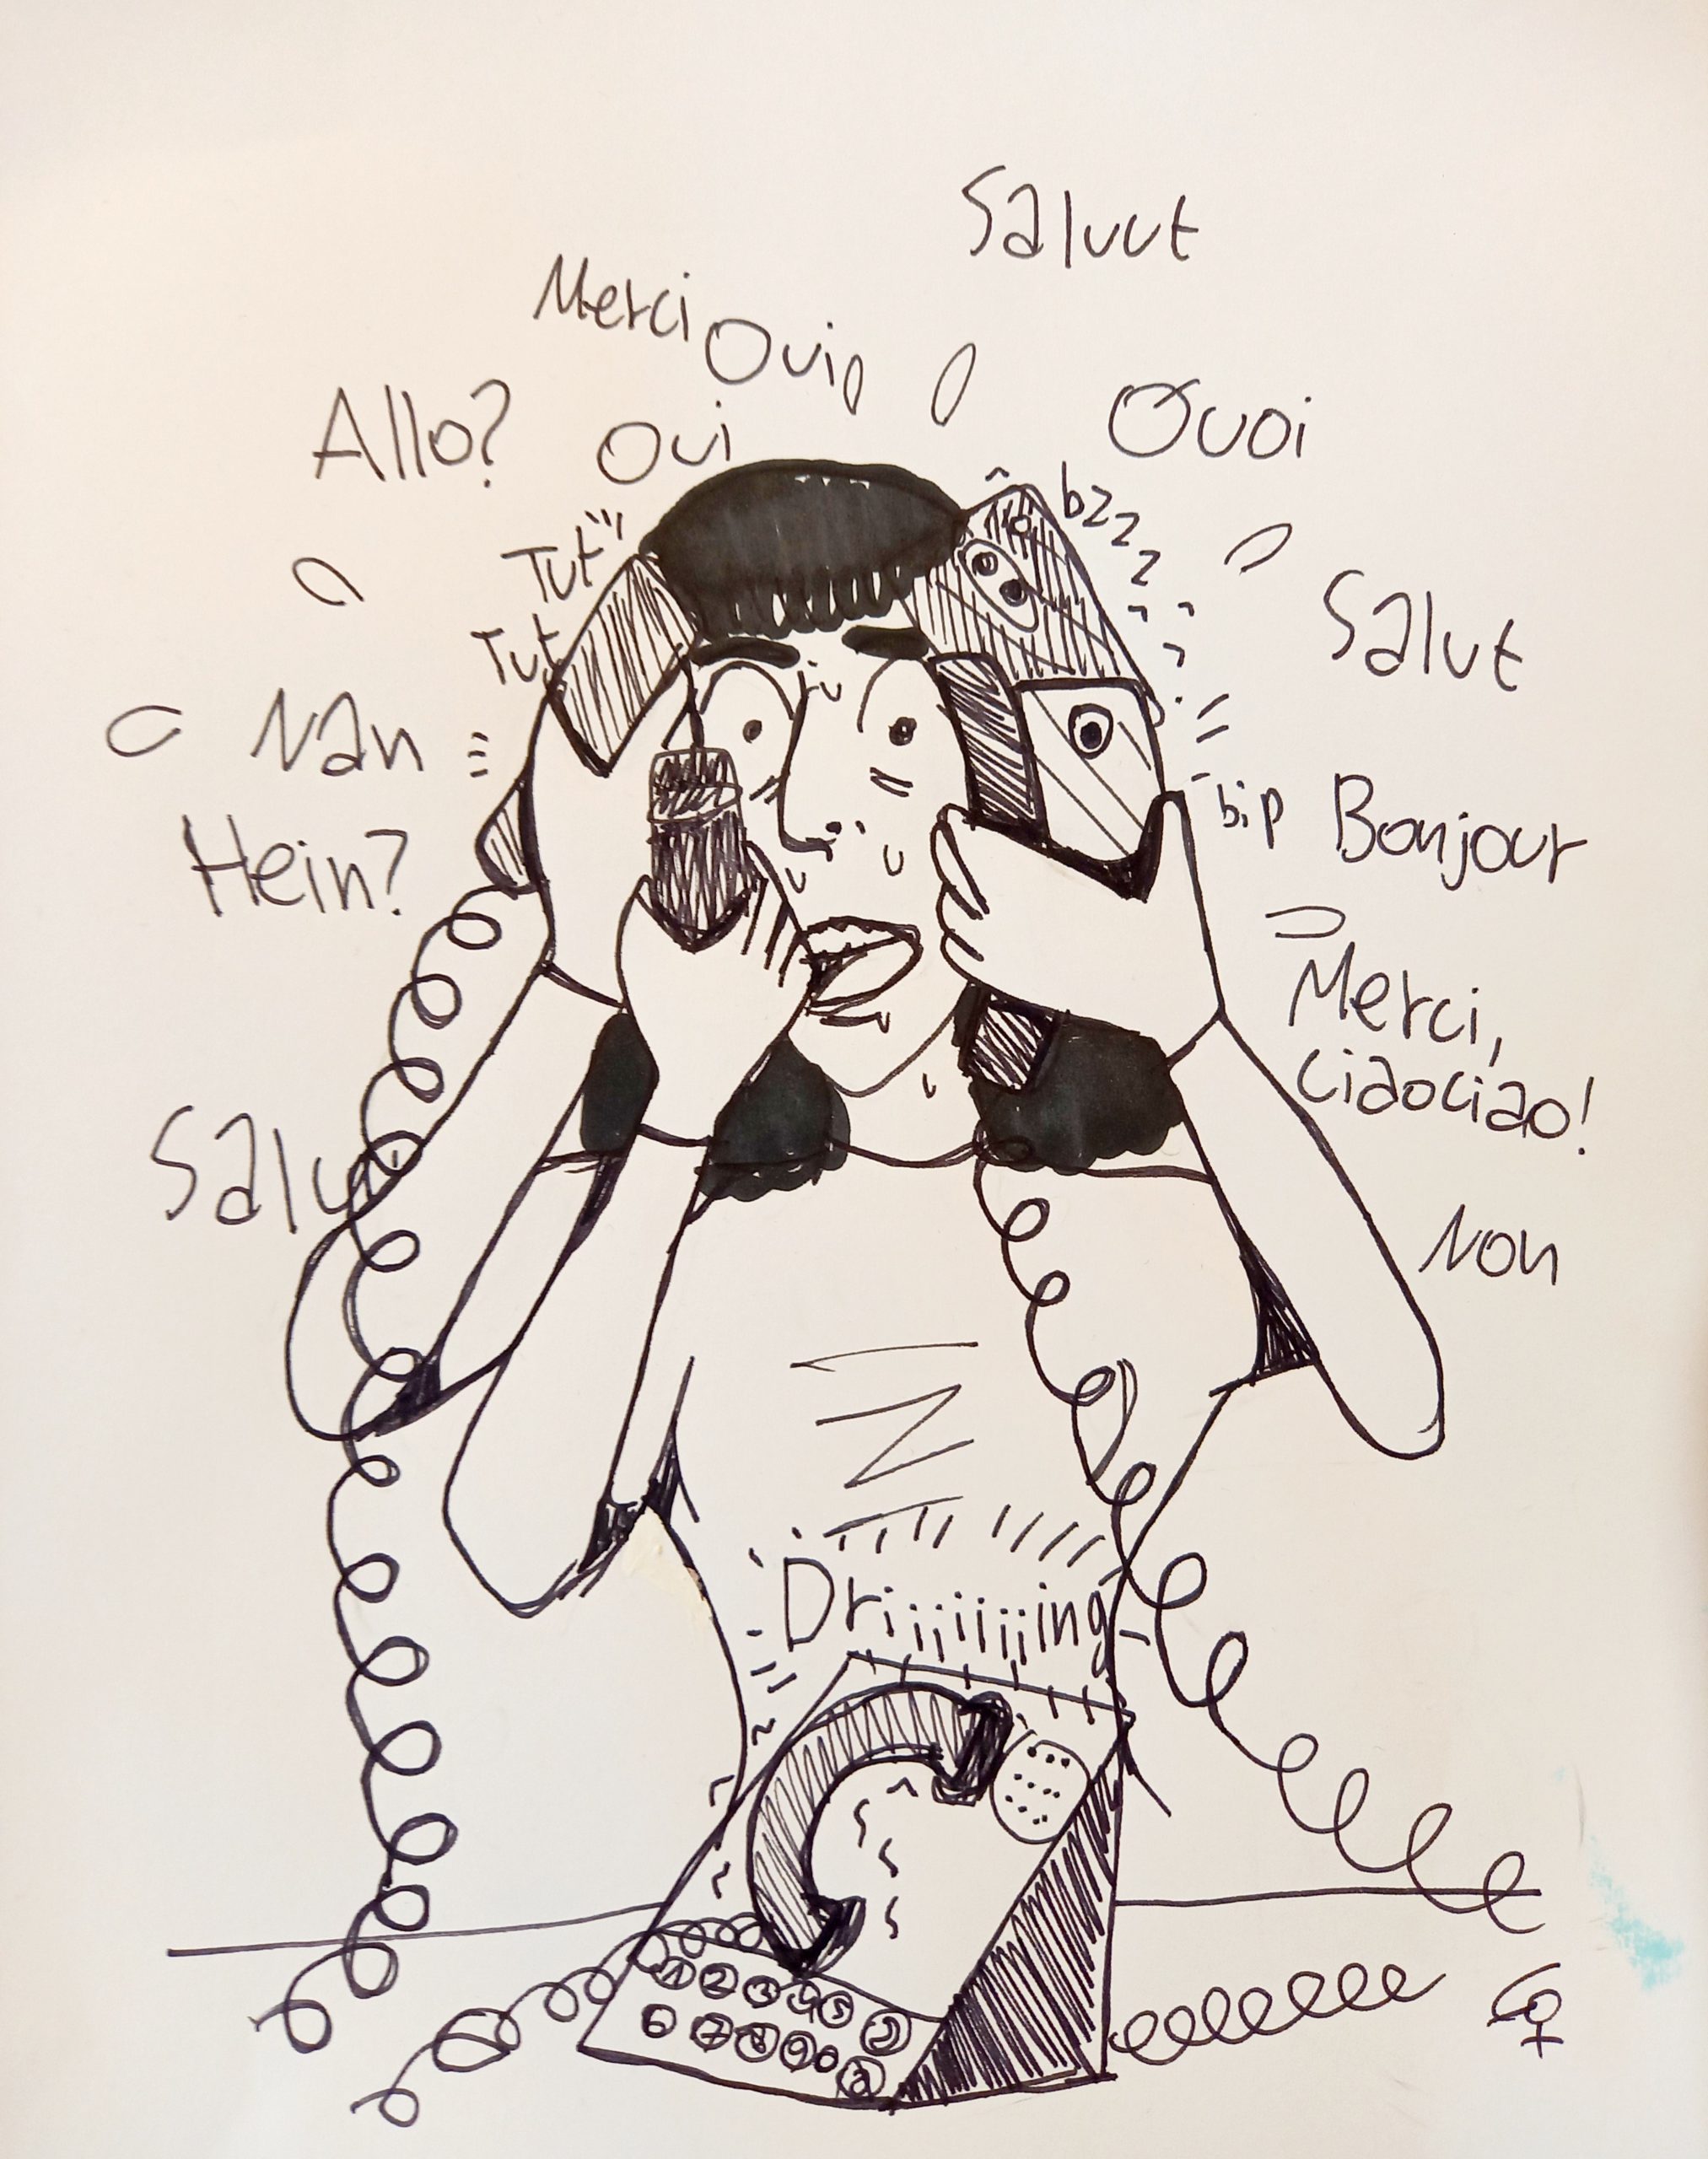 Saluut
Merci
Oui
Allo?
Oui
Quoi
bzzz
Tut
Tut
Salut
Nan
bip
Bonjour
Hein?
Merci,
ciaociao!
Salu
Non
Driiiiiiiing
1 2 3 4 5
6 7 8 9 0